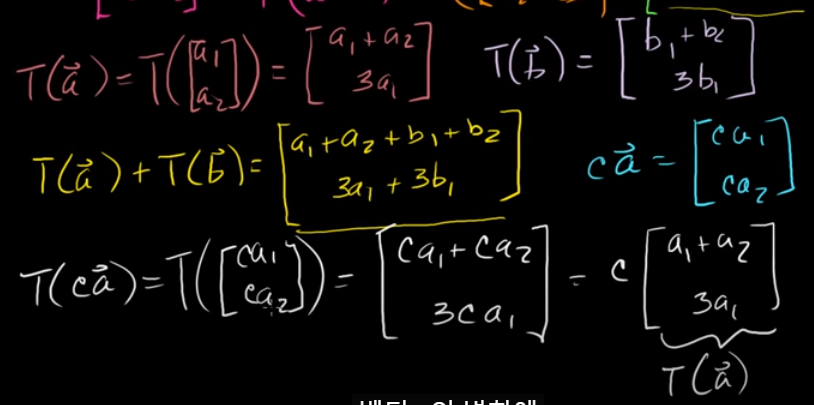 T(a⃗) = T([a₁ a₂]) = [a₁ + a₂ 3a₁] T(b⃗) = [b₁ + b₂ 3b₁]
T(a⃗) + T(b⃗) = [a₁ + a₂ + b₁ + b₂ 3a₁ + 3b₁] ca⃗ = [ca₁ ca₂]
T(ca⃗) = T([ca₁ ca₂]) = [ca₁ + ca₂ 3ca₁] = c[a₁ + a₂ 3a₁]
T(a⃗)